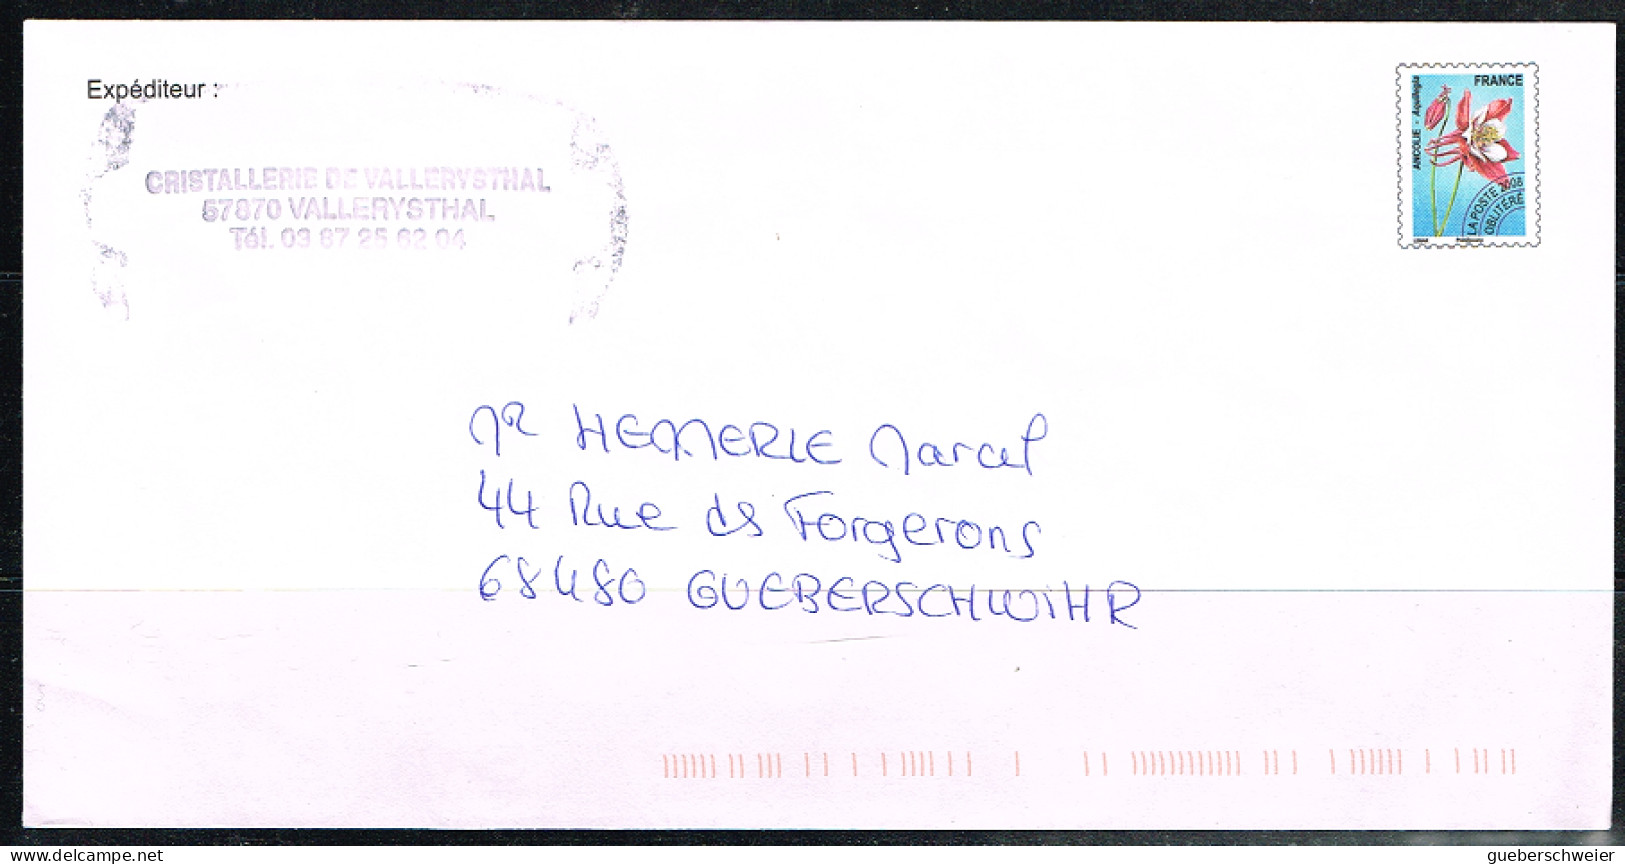 Expéditeur :
CRISTALLERIE DE VALLERYSTHAL
57870 VALLERYSTHAL
Tél. 03 87 25 62 04
FRANCE
ANCOLIE - Aquilegia
LA POSTE 2008
OBLITÉRÉ
Mr HEMMERLE Marcel
44 Rue ds Forgerons
68480 GUEBERSCHWIHR
delcampe.net
gueberschweier